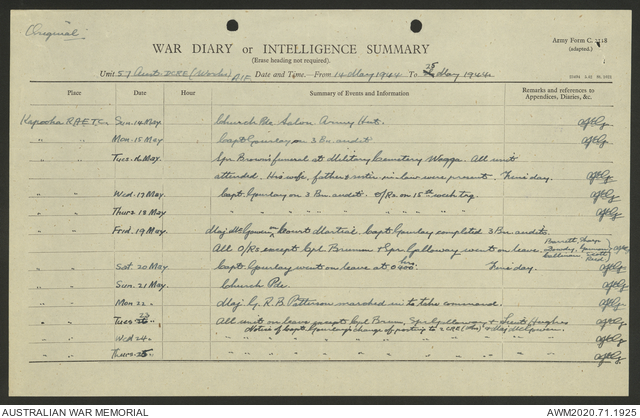 Original.
WAR DIARY or INTELLIGENCE SUMMARY
Army Form C. 2118
(adapted.)
(Erase heading not required).
Unit 57 Aust DCRE (Works) AIF Date and Time.—From 14 May 1944 To 25 May 1944
Place Date Hour Summary of Events and Information Remarks and references to Appendices, Diaries, &c.
Kapooka RAETC Sun. 14 May Church Pde Army Hut.
" " Mon. 15 May Capt Gourlay on 3 Bn. audit
" " Tues. 16 May Spr Brown's funeral at Military Cemetery Wagga. All unit
attended. His wife, father & sister in law were present. Fine day.
" " Wed. 17 May Capt. Gourlay on 3 Bn audit. O/Rs on 15th week trg.
" " Thurs 18 May " " " " " " "
" " Frid. 19 May Maj McGovern Court Martial. Capt Gourlay completed 3 Bn audits.
All O/Rs except Cpl Brunson & Spr Galloway went on leave. Barrett
" " Sat. 20 May Capt. Gourlay went on leave at hrs. Fine day.
" " Sun. 21 May Church Pde.
" " Mon 22 " Maj G. R. B. Patterson marched in to take command.
" " Tues 23 " All unit on leave except Cpl Brunson, Spr Galloway & Lieut Hughes
Notice of Capt Gourlay's change of posting to 2 CRE & Maj McGovern.
" " Wed 24 " " " " " " "
" " Thurs 25 " " " " " "
AUSTRALIAN WAR MEMORIAL
AWM2020.71.1925